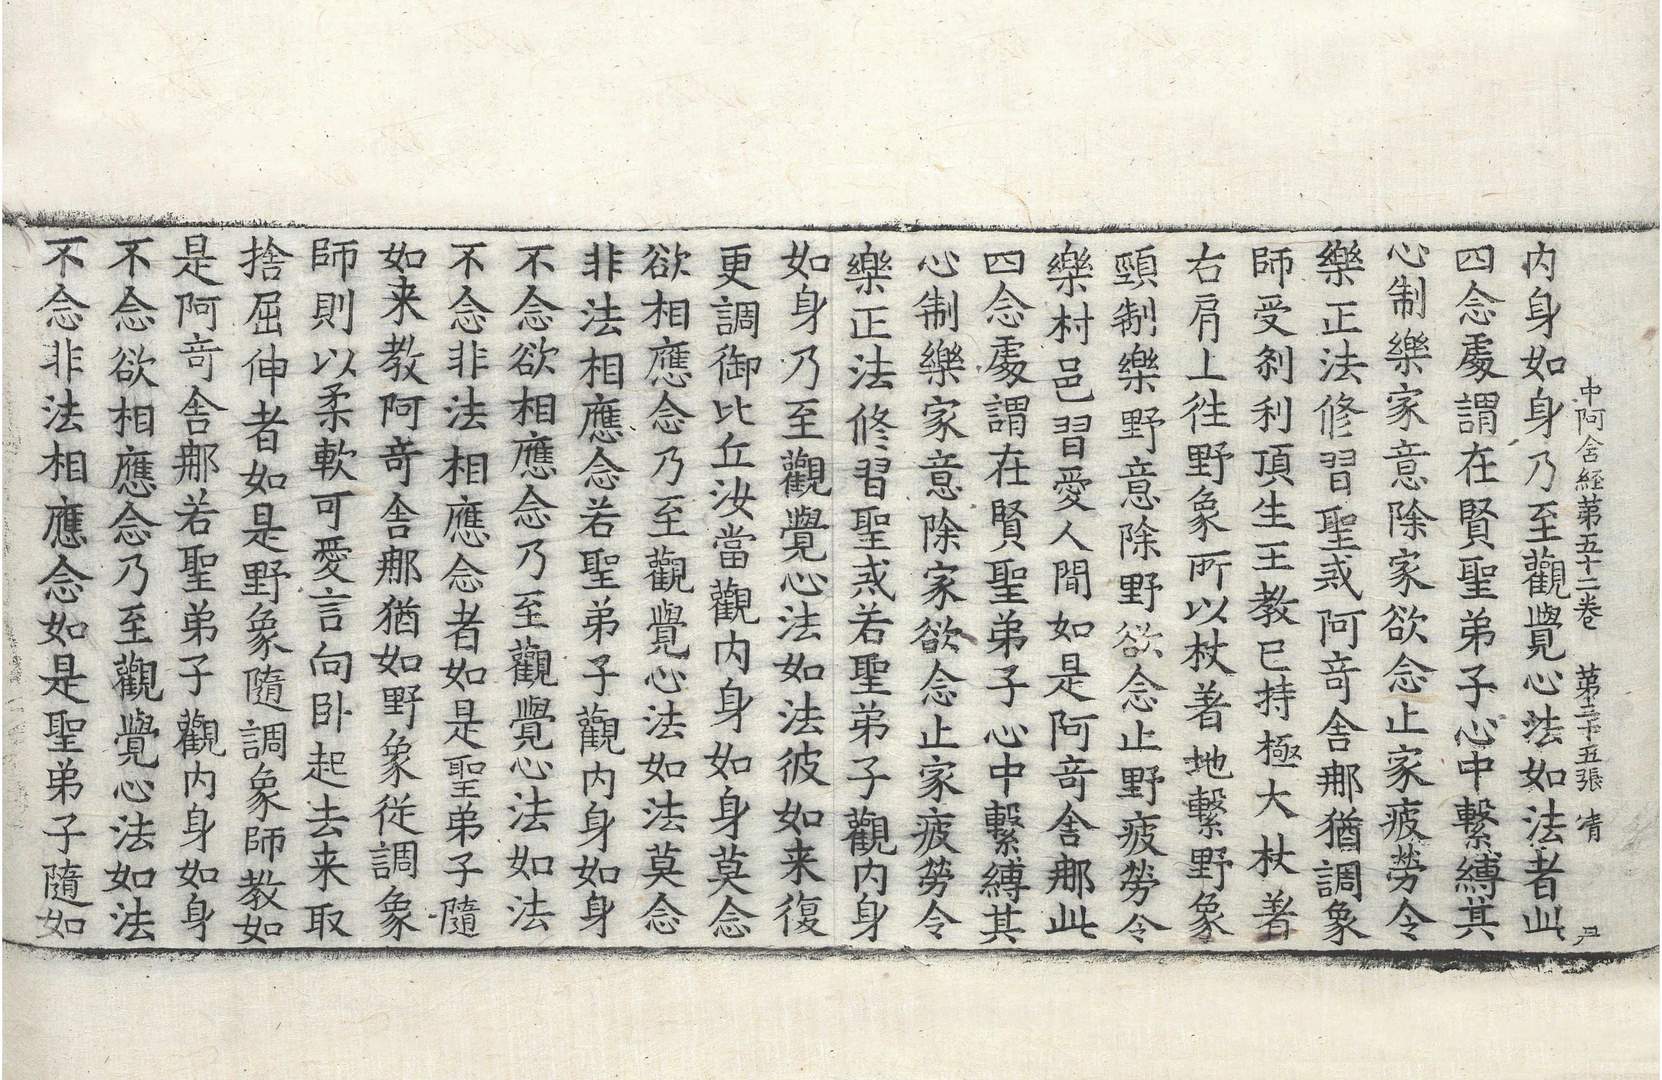 中阿含経第五十二卷 第二十五張 凊
内身如身乃至觀覺心法如法者此
四念處謂在賢聖弟子心中繫縛其
心制樂家意除家欲念止家疲勞令
樂正法修習聖戒阿竒舎郍猶調象
師受刹利頂生王教已持極大杖著
右肩上徃野象所以杖著地繫野象
頸制樂野意除野欲念止野疲勞令
樂村邑習愛人間如是阿竒舎郍此
四念處謂在賢聖弟子心中繫縛其
心制樂家意除家欲念止家疲勞令
樂正法修習聖戒若聖弟子觀内身
如身乃至觀覺心法如法彼如来復
更調御比丘汝當觀内身如身莫念
欲相應念乃至觀覺心法如法莫念
非法相應念若聖弟子觀内身如身
不念欲相應念乃至觀覺心法如法
不念非法相應念者如是聖弟子隨
如来教阿竒舎郍猶如野象従調象
師則以柔軟可愛言向卧起去来取
捨屈伸者如是野象隨調象師教如
是阿竒舎郍若聖弟子觀内身如身
不念欲相應念乃至觀覺心法如法
不念非法相應念如是聖弟子隨如